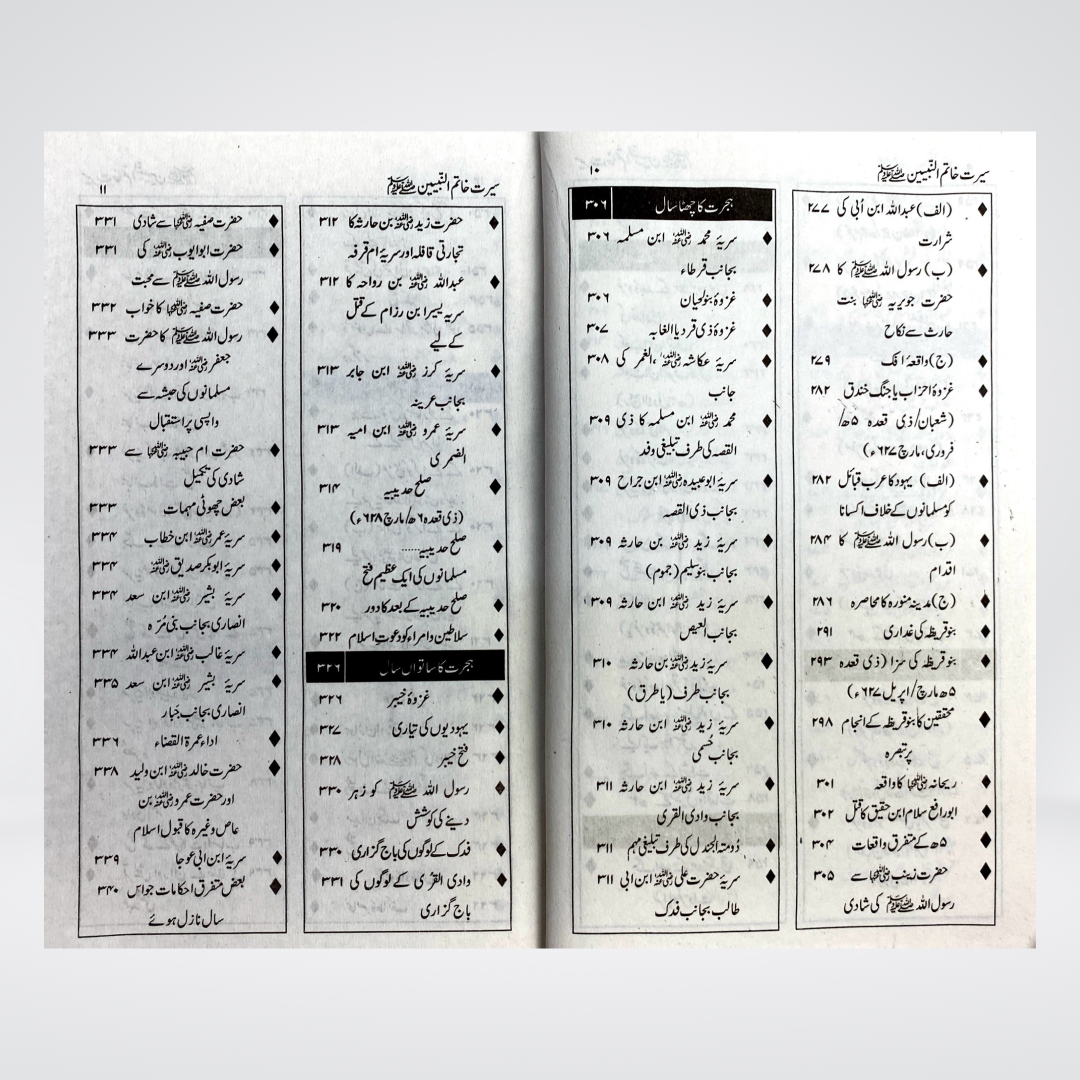 سیرت خاتم النّبیین ﷺ ۱۰
(الف) عبداللہ ابن اُبی کی ۲۷۷
شرارت
(ب) رسول اللہ ﷺ کا ۲۷۸
حضرت جویریہ رضی اللہ عنہا بنت
حارث سے نکاح
(ج) واقعۂ افک ۲۷۹
غزوۂ احزاب یا جنگ خندق ۲۸۲
(شعبان/ذی قعدہ ۵ھ/
فروری، مارچ ۶۲۷ء)
(الف) یہود کا عرب قبائل ۲۸۲
کو مسلمانوں کے خلاف اکسانا
(ب) رسول اللہ ﷺ کا ۲۸۴
اقدام
(ج) مدینہ منورہ کا محاصرہ ۲۸۶
بنو قریظہ کی غداری ۲۹۱
بنو قریظہ کی سزا (ذی قعدہ ۲۹۳
۵ھ مارچ/اپریل ۶۲۷ء)
محققین کا بنو قریظہ کے انجام ۲۹۸
پر تبصرہ
ریحانہ رضی اللہ عنہا کا واقعہ ۳۰۱
ابو رافع سلام ابن حقیق کا قتل ۳۰۲
۵ھ کے متفرق واقعات ۳۰۴
حضرت زینب رضی اللہ عنہا سے ۳۰۵
رسول اللہ ﷺ کی شادی
ہجرت کا چھٹا سال ۳۰۶
سریۂ محمد رضی اللہ عنہ ابن مسلمہ ۳۰۶
بجانب قرطاء
غزوۂ بنو لحیان ۳۰۶
غزوۂ ذی قرد یا الغابہ ۳۰۷
سریۂ عکاشہ رضی اللہ عنہ، الغمر کی ۳۰۸
جانب
محمد رضی اللہ عنہ ابن مسلمہ کا ذی ۳۰۹
القصہ کی طرف تبلیغی وفد
سریۂ ابو عبیدہ رضی اللہ عنہ ابن جراح ۳۰۹
بجانب ذی القصہ
سریۂ زید رضی اللہ عنہ بن حارثہ ۳۰۹
بجانب بنو سلیم (جموم)
سریۂ زید رضی اللہ عنہ ابن حارثہ ۳۰۹
بجانب العیص
سریۂ زید رضی اللہ عنہ بن حارثہ ۳۱۰
بجانب طرف (یا طرق)
سریۂ زید رضی اللہ عنہ ابن حارثہ ۳۱۰
بجانب حُسمی
سریۂ زید رضی اللہ عنہ ابن حارثہ ۳۱۱
بجانب وادی القری
دُومتہ الجندل کی طرف تبلیغی مہم ۳۱۱
سریۂ حضرت علی رضی اللہ عنہ ابن ابی ۳۱۱
طالب بجانب فدک
سیرت خاتم النّبیین ﷺ ۱۱
حضرت زید رضی اللہ عنہ بن حارثہ کا ۳۱۲
تجارتی قافلہ اور سریۂ ام قرفہ
عبداللہ رضی اللہ عنہ بن رواحہ کا ۳۱۲
سریہ یسیر ابن رزام کے قتل
کے لیے
سریۂ کرز رضی اللہ عنہ ابن جابر ۳۱۳
بجانب عرینہ
سریۂ عمرو رضی اللہ عنہ ابن امیہ ۳۱۳
الضمری
صلح حدیبیہ ۳۱۴
(ذی قعدہ ۶ھ/مارچ ۶۲۸ء)
صلح حدیبیہ...... ۳۱۹
مسلمانوں کی ایک عظیم فتح
صلح حدیبیہ کے بعد کا دور ۳۲۰
سلاطین و امراء کو دعوتِ اسلام ۳۲۲
ہجرت کا ساتواں سال ۳۲۶
غزوۂ خیبر ۳۲۶
یہودیوں کی تیاری ۳۲۷
فتح خیبر ۳۲۸
رسول اللہ ﷺ کو زہر ۳۳۰
دینے کی کوشش
فدک کے لوگوں کی باج گزاری ۳۳۰
وادی القرٰی کے لوگوں کی ۳۳۱
باج گزاری
حضرت صفیہ رضی اللہ عنہا سے شادی ۳۳۱
حضرت ابو ایوب رضی اللہ عنہ کی ۳۳۱
رسول اللہ ﷺ سے محبت
حضرت صفیہ رضی اللہ عنہا کا خواب ۳۳۲
رسول اللہ ﷺ کا حضرت ۳۳۳
جعفر رضی اللہ عنہ اور دوسرے
مسلمانوں کی حبشہ سے
واپسی پر استقبال
حضرت ام حبیبہ رضی اللہ عنہا سے ۳۳۳
شادی کی تکمیل
بعض چھوٹی مہمات ۳۳۳
سریۂ عمر رضی اللہ عنہ ابن خطاب ۳۳۴
سریۂ ابوبکر صدیق رضی اللہ عنہ ۳۳۴
سریۂ بشیر رضی اللہ عنہ ابن سعد ۳۳۴
انصاری بجانب بنی مُرّہ
سریۂ غالب رضی اللہ عنہ ابن عبداللہ ۳۳۴
سریۂ بشیر رضی اللہ عنہ ابن سعد ۳۳۵
انصاری بجانب جَبار
اداء عمرۃ القضاء ۳۳۶
حضرت خالد رضی اللہ عنہ ابن ولید ۳۳۸
اور حضرت عمرو رضی اللہ عنہ بن
عاص وغیرہ کا قبول اسلام
سریۂ ابن ابی عوجا ۳۳۹
بعض متفرق احکامات جو اس ۳۴۰
سال نازل ہوئے